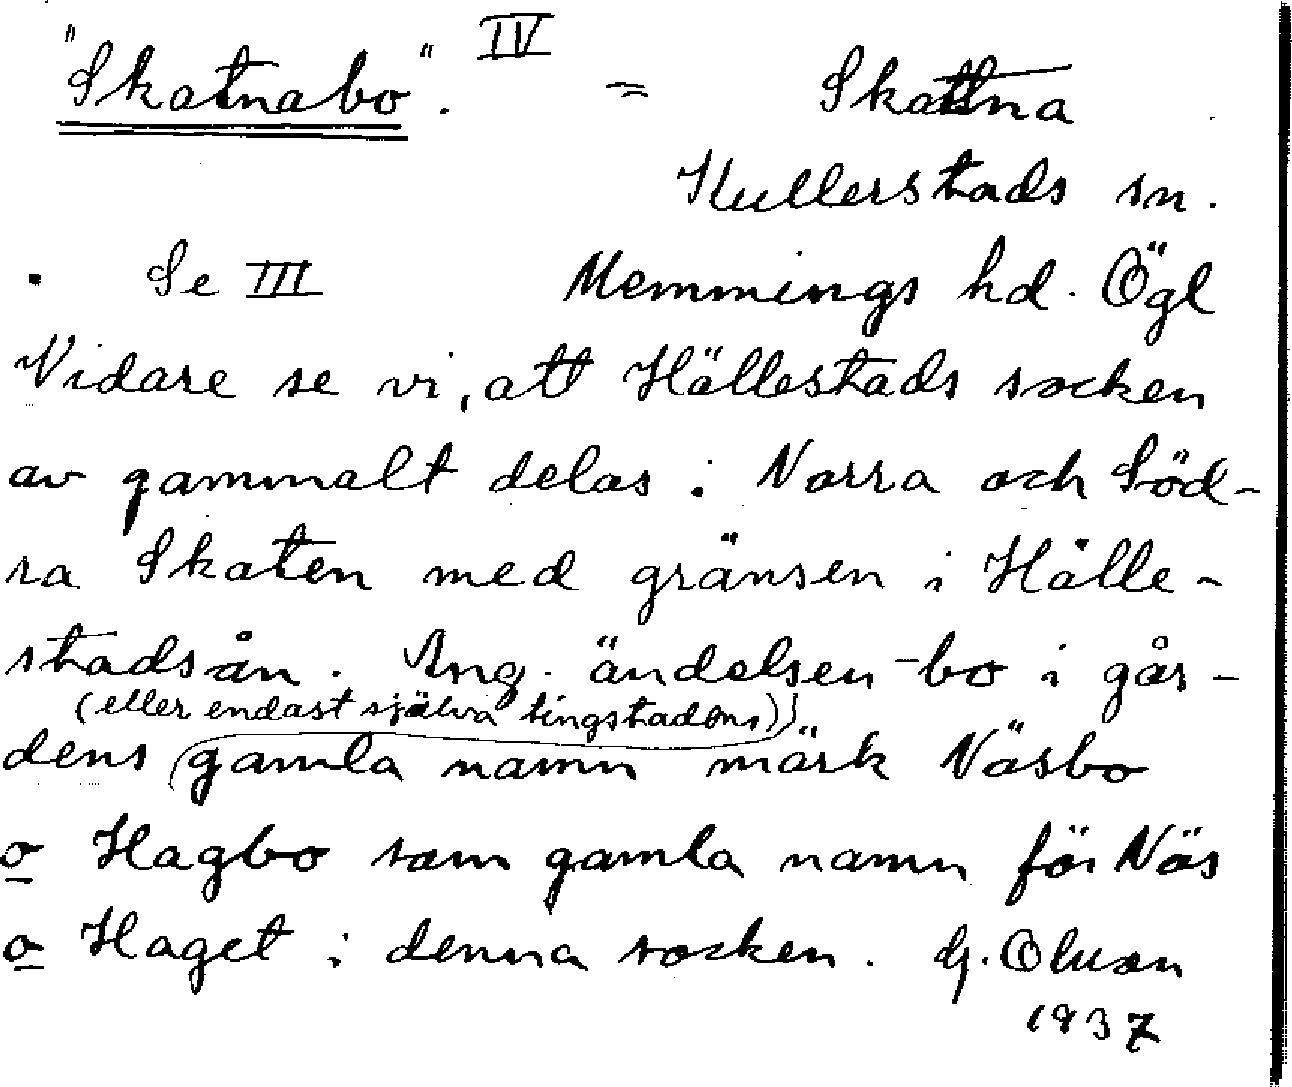 "Skatnabo". IV = Skattna
Kullerstads sn.
. Se III Memmings hd. Ögl
Vidare se vi, att Hällestads socken
av gammalt delas i Norra och Söd-
ra Skaten med gränsen i Hälle-
stadsån. Ang. ändelsen -bo i går-
(eller endast själva tingstadens)
dens gamla namn märk Näsbo
o Hagbo som gamla namn för Näs
o Haget i denna socken. G. Oluson
1937